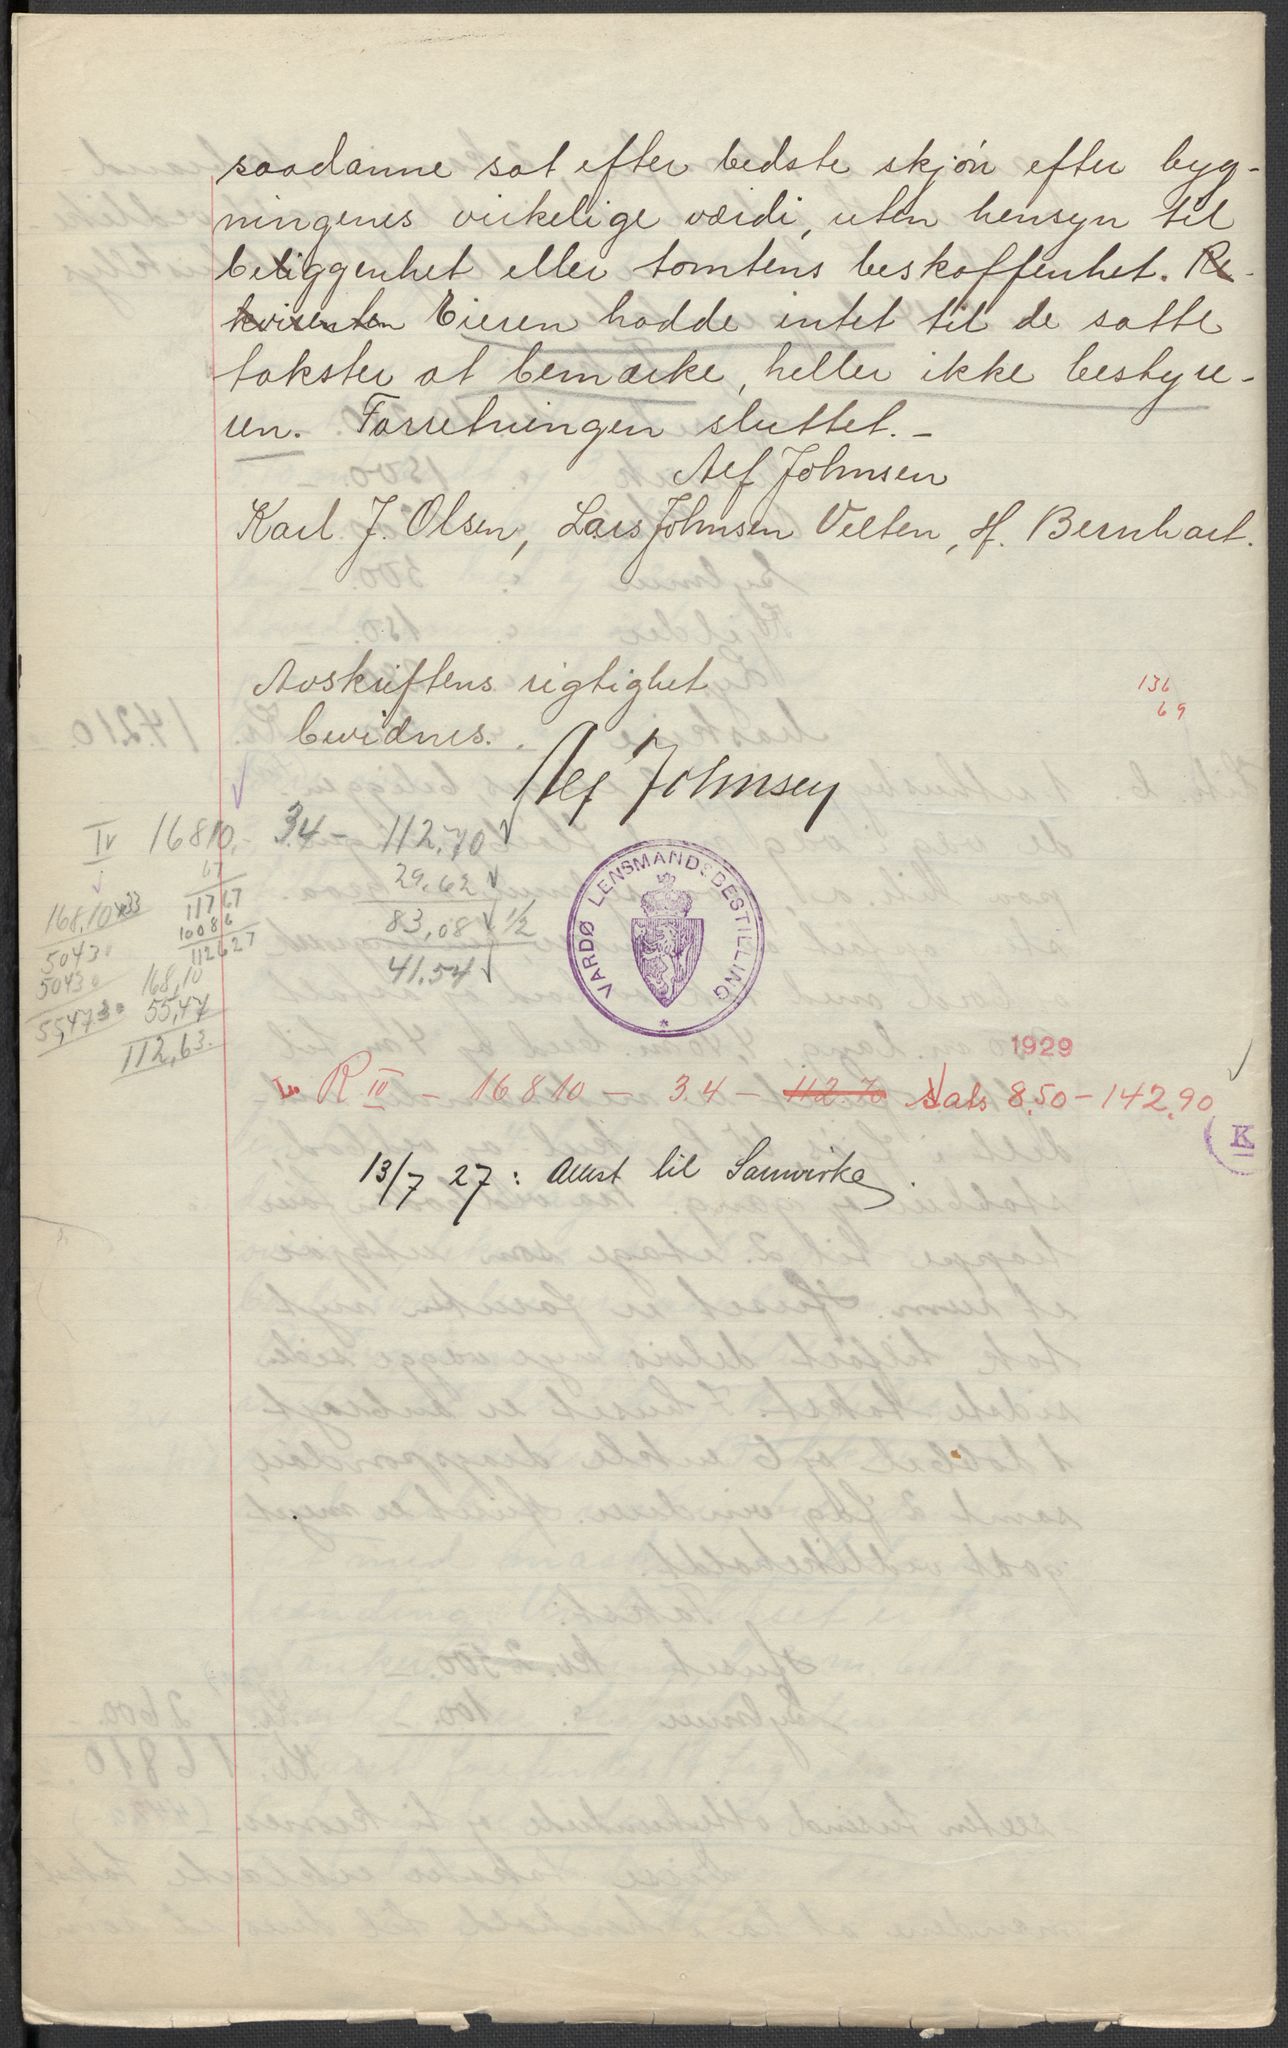 saadanne sat efter bedste skjøn efter byg-
ningenes virkelige værdi, uten hensyn til
beliggenhet eller tomtens beskaffenhet. Re-
kvirenten Eieren hadde intet til de satte
takster at bemærke, heller ikke bestyre-
ren. Forretningen sluttet.-
Alf Johnsen
Karl J. Olsen, Lars Johnsen Velten, H. Bernhart.
Avskriftens rigtighet
bevidnes.
Alf Johnsen
136
69
IV 16810,- 3.4 - 112,70
67
11767
10086
112627
29.62
83,08 1/2
41.54
168,10 x 33
5043
5043
55,473
168,10
55,47
112,63.
VARDØ LENSMANDSBESTILLING
1929
R IV - 16810 - 3.4 - 112.70 Sats 8.50 - 142.90
K
13/7 27: til Samvirke.